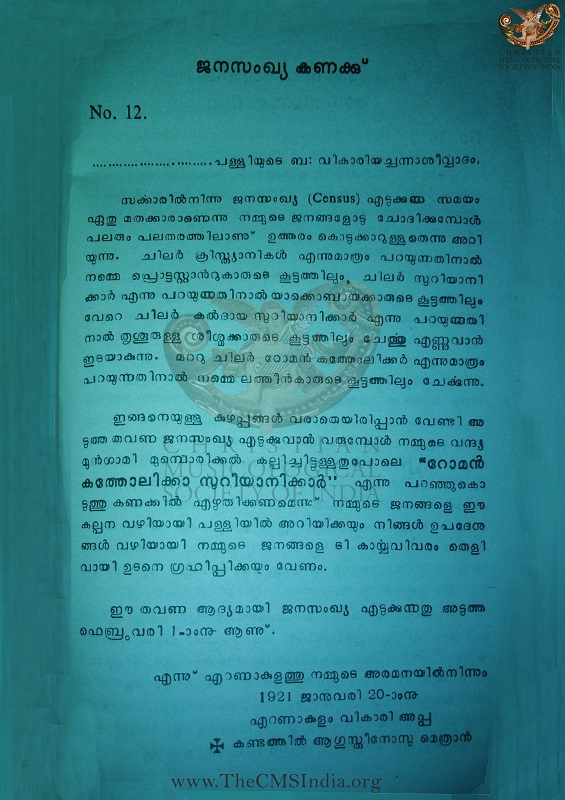 CHRISTIAN
MUSICOLOGICAL
SOCIETY OF INDIA
ജനസംഖ്യ കണക്കു്
No. 12.
............................പള്ളിയുടെ ബ: വികാരിയച്ചന്നാശീൎവ്വാദം.
സൎക്കാരിൽനിന്നു ജനസംഖ്യ (Census) എടുക്കുന്ന സമയം
ഏതു മതക്കാരാണെന്നു നമ്മുടെ ജനങ്ങളോടു ചോദിക്കുമ്പോൾ
പലരും പലതരത്തിലാണു് ഉത്തരം കൊടുക്കാറുള്ളതെന്നു അറി
യുന്നു. ചിലർ ക്രിസ്ത്യാനികൾ എന്നുമാത്രം പറയുന്നതിനാൽ
നമ്മെ പ്രൊട്ടസ്റ്റാൻറുകാരുടെ കൂട്ടത്തിലും, ചിലർ സുറിയാനി
ക്കാർ എന്നു പറയുന്നതിനാൽ യാക്കൊബായക്കാരുടെ കൂട്ടത്തിലും
വേറെ ചിലർ കൽദായ സുറിയാനിക്കാർ എന്നു പറയുന്നതി
നാൽ തൃശൂരുള്ള ശീശ്മക്കാരുടെ കൂട്ടത്തിലും ചേൎത്തു എണ്ണുവാൻ
ഇടയാകുന്നു. മററു ചിലർ റോമൻ കത്തോലിക്കർ എന്നുമാത്രം
പറയുന്നതിനാൽ നമ്മെ ലത്തീൻകാരുടെ കൂട്ടത്തിലും ചേൎക്കുന്നു.
ഇങ്ങനെയുള്ള കുഴപ്പങ്ങൾ വരാതെയിരിപ്പാൻ വേണ്ടി അ
ടുത്ത തവണ ജനസംഖ്യ എടുക്കുവാൻ വരുമ്പോൾ നമ്മുടെ വന്ദ്യ
മുൻഗാമി മുമ്പൊരിക്കൽ കല്പിച്ചിട്ടുള്ളതുപോലെ “റോമൻ
കത്തോലിക്കാ സുറിയാനിക്കാർ” എന്നു പറഞ്ഞുകൊ
ടുത്തു കണക്കിൽ എഴുതിക്കണമെന്നു് നമ്മുടെ ജനങ്ങളെ ഈ
കല്പന വഴിയായി പള്ളിയിൽ അറിയിക്കയും നിങ്ങൾ ഉപദേശ
ങ്ങൾ വഴിയായി നമ്മുടെ ജനങ്ങളെ ടി കാൎയ്യവിവരം തെളി
വായി ഉടനെ ഗ്രഹിപ്പിക്കയും വേണം.
ഈ തവണ ആദ്യമായി ജനസംഖ്യ എടുക്കുന്നതു അടുത്ത
ഫെബ്രുവരി 1-ാംനു ആണു്.
എന്നു് എറണാകുളത്തു നമ്മുടെ അരമനയിൽനിന്നും
1921 ജാനുവരി 20-ാംനു
എറണാകുളം വികാരി അപ്പ
✠ കണ്ടത്തിൽ ആഗുസ്തീനോസു മെത്രാൻ
CHRISTIAN
MUSICOLOGICAL
SOCIETY OF INDIA
www.TheCMSIndia.org